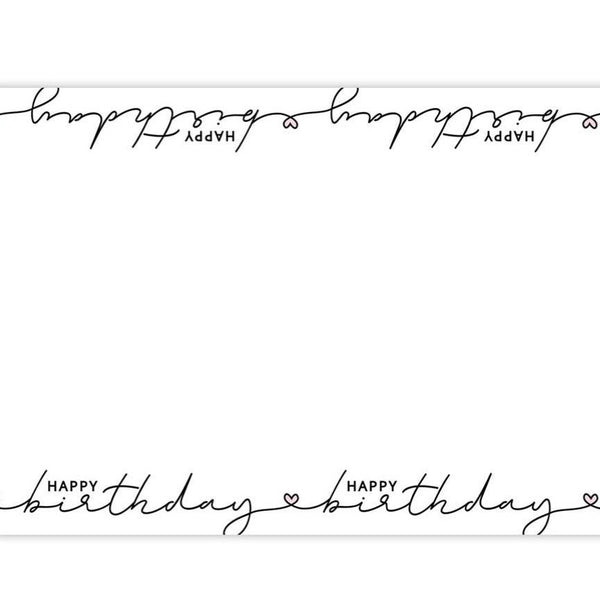 HAPPY birthday HAPPY birthday
HAPPY birthday HAPPY birthday